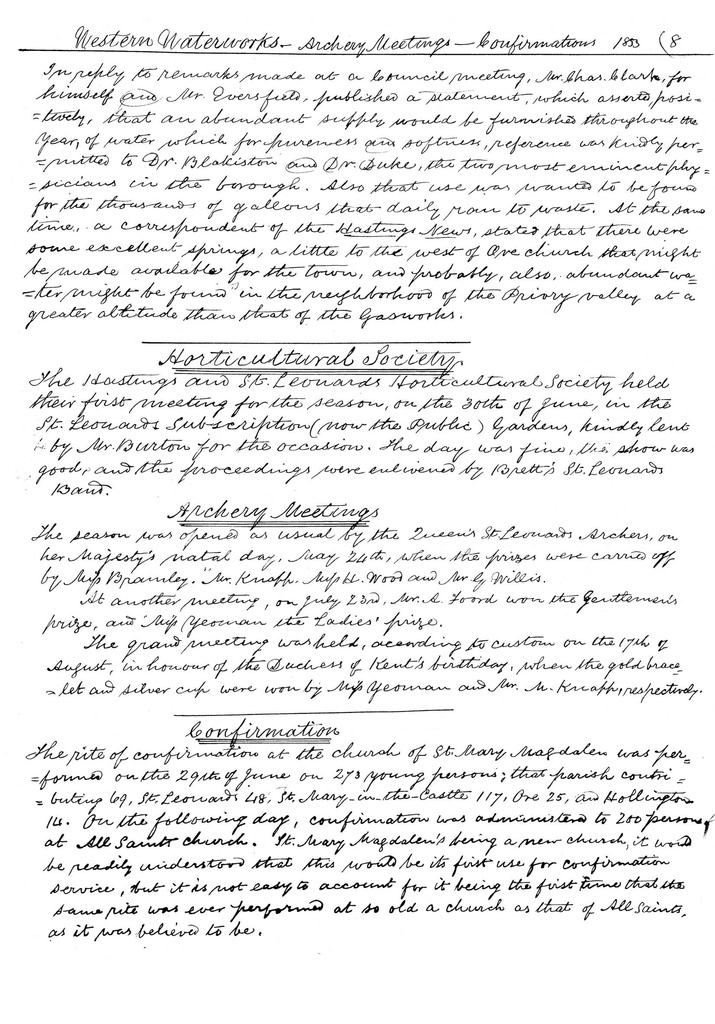 Western Waterworks - Archery Meetings - Confirmations 1853 (8
In reply to remarks made at a Council meeting, Mr. Chas. Clark, for
himself and Mr. Eversfield, published a statement, which asserted posi=
=tively, that an abundant supply would be furnished throughout the
Year, of water which for pureness and softness, reference was kindly per=
=mitted to Dr. Blakiston and Dr. Duke, the two most eminent phy=
=sicians in the borough. Also that use was wanted to be found
for the thousands of gallons that daily ran to waste. At the same
time, a correspondent of the Hastings News, stated that there were
some excellent springs, a little to the west of Ore church that might
be made available for the town, and probably, also, abundant wa=
=ter might be found in the neighborhood of the Priory valley at a
greater altitude than that of the Gasworks.
Horticultural Society.
The Hastings and St. Leonards Horticultural Society held
their first meeting for the season, on the 30th of June, in the
St. Leonards Subscription (now the Public) Gardens, kindly lent
by Mr. Burton for the occasion. The day was fine, the show was
good, and the proceedings were enlivened by Brett's St. Leonards
Band.
Archery Meetings
The season was opened as usual by the Queen's St. Leonards Archers, on
her Majesty's natal day, May 24th, when the prizes were carried off
by Miss Bramley, Mr. Knapp, Miss H. Wood and Mr. G. Willis.
At another meeting, on July 23rd, Mr. A. Foord won the Gentlemen's
prize, and Miss Yeoman the Ladies' prize.
The grand meeting was held, acording to custom on the 17th of
August, in honour of the Duchess of Kent's birthday, when the gold brace=
=let and silver cup were won by Miss Yeoman and Mr. M. Knapp, respectively.
Confirmation
The rite of confirmation at the church of St. Mary Magdalen was per=
=formed on the 29th of June on 273 young persons; that parish contri=
=buting 69, St. Leonards 48, St. Mary-in-the-Castle 117, Ore 25, and Hollington
14. On the following day, confirmation was administered to 200 persons
at All Saints church. St. Mary Magdalen's being a new church, it would
be readily understood that this would be its first use for confirmation
service, but it is not easy to account for it being the first time that the
same rite was ever performed at so old a church as that of All Saints,
as it was believed to be.